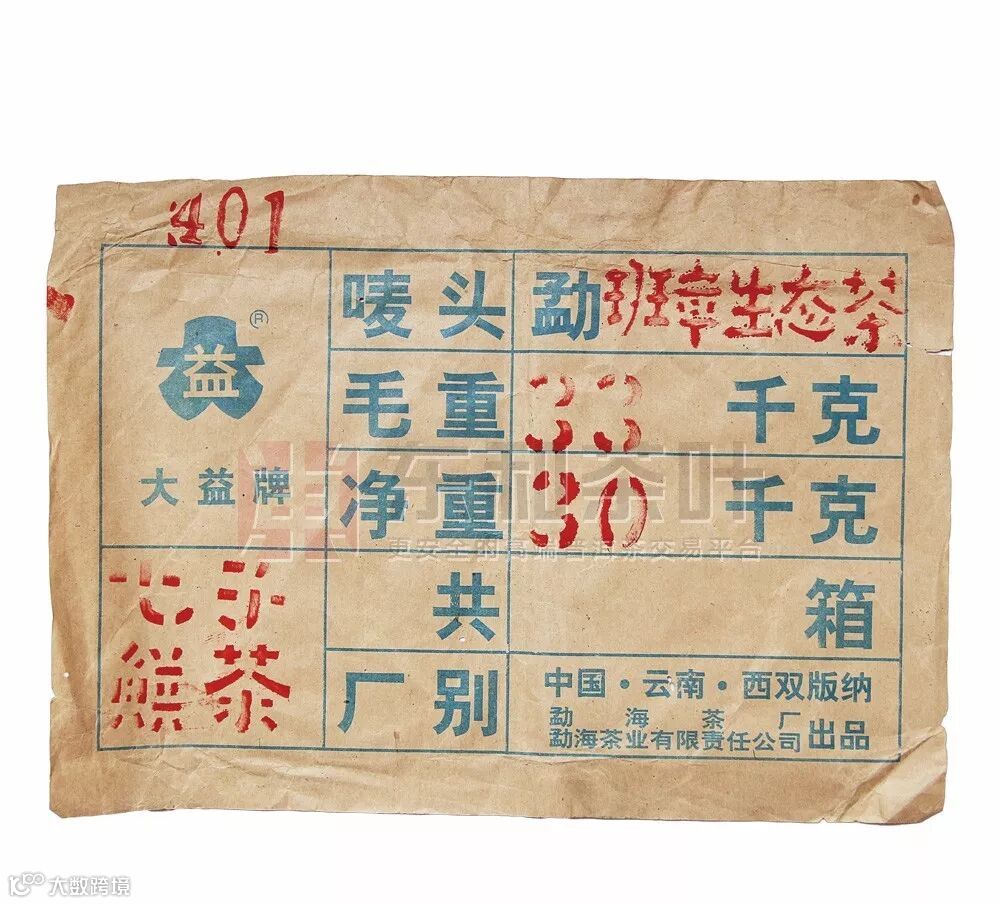 401
唛头 勐班章生态茶
益 ®
毛重 33 千克
大益牌
净重 30 千克
东和茶叶
更安全的高端普洱茶交易平台
七子
餅茶
共 箱
厂别 中国·云南·西双版纳
勐海茶厂
勐海茶业有限责任公司 出品
大数跨境